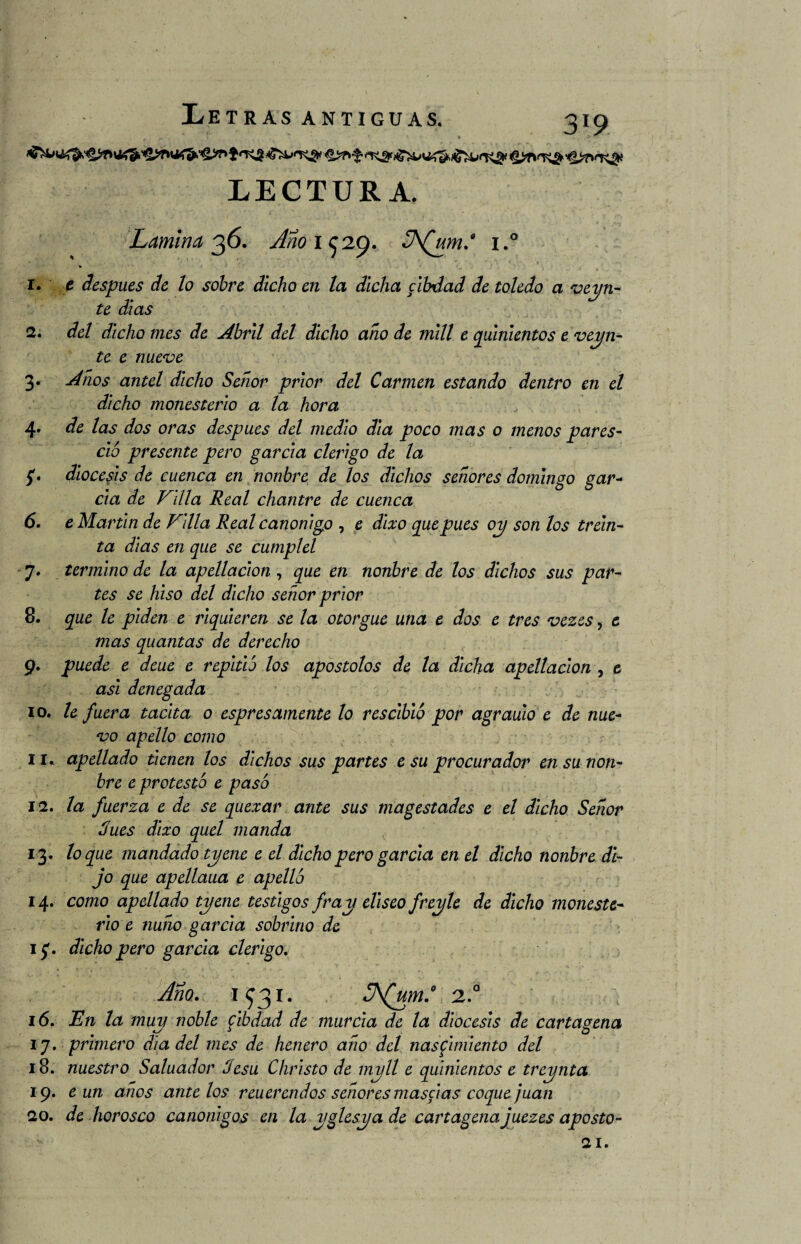 LETRAS ANTIGUAS. 319
LECTURA.
Lamina 36. Año 1529. Num.º 1.º
1. e despues de lo sobre dicho en la dicha çibdad de toledo a veyn-
te dias
2. del dicho mes de Abril del dicho año de mill e quinientos e veyn-
te e nueve
3. Años antel dicho Señor prior del Carmen estando dentro en el
dicho monesterio a la hora
4. de las dos oras despues del medio dia poco mas o menos pares-
ció presente pero garcia clerigo de la
5. diocesis de cuenca en nonbre de los dichos señores domingo gar-
cia de Villa Real chantre de cuenca
6. e Martin de Villa Real canonigo, e dixo que pues oy son los trein-
ta dias en que se cumplel
7. termino de la apellacion, que en nonbre de los dichos sus par-
tes se hiso del dicho señor prior
8. que le piden e riquieren se la otorgue una e dos e tres vezes, e
mas quantas de derecho
9. puede e deue e repitió los apostolos de la dicha apellacion, e
asi denegada
10. le fuera tacita o espresamente lo rescibió por agrauio e de nue-
vo apello como
11. apellado tienen los dichos sus partes e su procurador en su non-
bre e protestó e pasó
12. la fuerza e de se quexar ante sus magestades e el dicho Señor
Jues dixo quel manda
13. lo que mandado tyene e el dicho pero garcia en el dicho nonbre di-
jo que apellaua e apelló
14. como apellado tyene testigos fray eliseo freyle de dicho moneste-
rio e nuño garcia sobrino de
15. dicho pero garcia clerigo.
Año. 1531. Num.º 2.º
16. En la muy noble çibdad de murcia de la diocesis de cartagena
17. primero dia del mes de henero año del nasçimiento del
18. nuestro Saluador Jesu Christo de myll e quinientos e treynta
19. e un años ante los reuerendos señores masçias coque juan
20. de horosco canonigos en la yglesya de cartagena juezes aposto-
21.